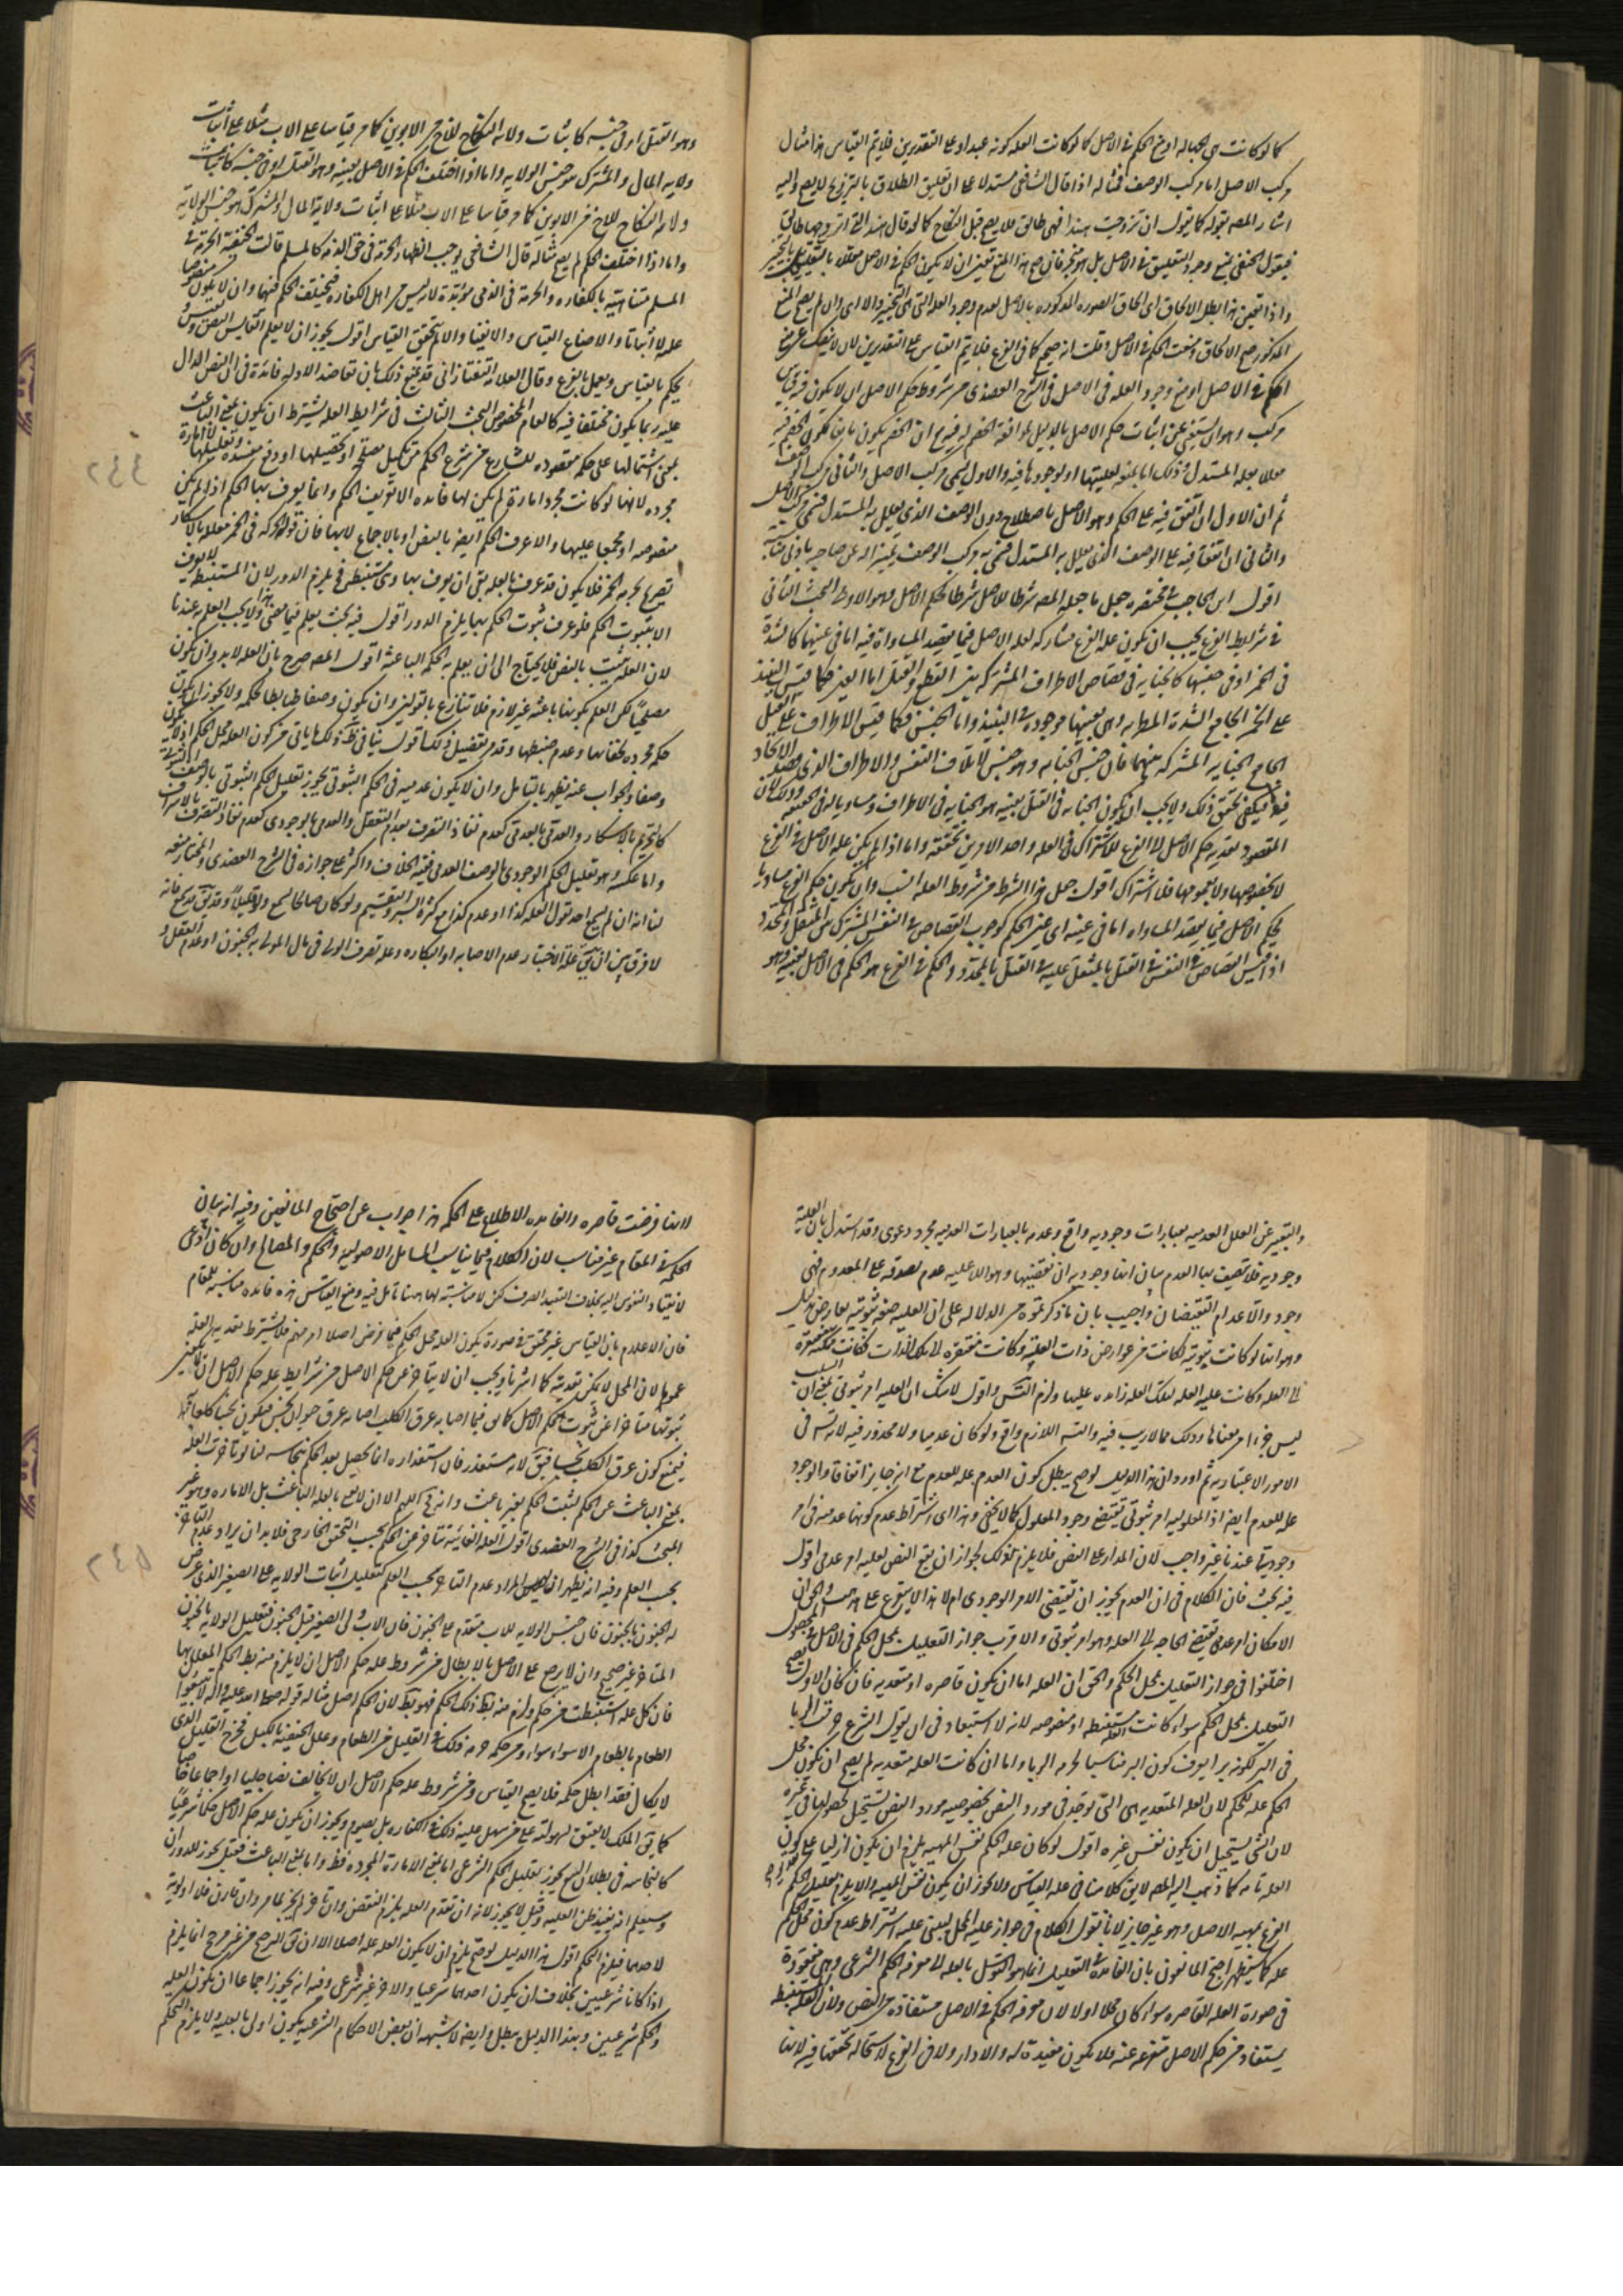 كما لو كانت هى الجهاله او منع الحكم فى الاصل كما لو كانت العله كونه عبدا وعلى التقديرين فلا يتم القياس هذا مثال
مركب الاصل اما مركب الوصف فمثاله اذا قال الشافعى مستدلا على ان تعليق الطلاق بالتزويج لا يصح واليه
اشار المصه بقوله كما يقول ان تزوجت هندا فهى طالق فلا يصح قبل النكاح كما لو قال هند التى اتزوجها طالق
فيقول الحنفى يمنع وجود التعليق فى الاصل بل هو منجز فان صح هذا المنع تعين ان لا يكون الحكم فى الاصل معللا بالتعليق بل بالتنجيز
واذا تعين هذا بطل الالحاق اى الحاق الصوره المذكوره بالاصل لعدم وجود العله التى هى التنجيز والا اى وان لم يصح المنع
المذكور صح الالحاق ومنعت الحكم فى الاصل وقلت انه صحيح كما فى الفرع فلا يتم القياس على التقديرين لان لا ينفك عن منع
الحكم فى الاصل او منع وجود العله فى الاصل فى الشرح العضدى من شروط حكم الاصل ان لا يكون ذو قياس
مركب وهو ان يستغنى عن اثبات حكم الاصل بالدليل لموافقة الخصم له فيه مع ان الخصم يكون مانعا لكون الحكم فيه
معللا بعله المستدل وذلك اما بمنعه لعليتها او لوجودها فيه والاول يسمى مركب الاصل والثانى مركب الوصف
ثم ان الاول ان اتفق فيه على الحكم وهو الاصل باصطلاح دون الوصف الذى يعلل به المستدل فسمى مركب الاصل
والثانى ان اتفقا فيه على الوصف الذى يعلل به المستدل فسمى به مركب الوصف تمييزا له عن صاحبه بادنى مناسبه
اقول ابن الحاجب فى مختصره جعل ما جعله المصه شرطا للاصل شرطا لحكم الاصل وهو الاولى البحث الثانى
فى شرايط الفرع يجب ان يكون عله الفرع مشاركه لعله الاصل فيما يقصد المساواة فيه اما فى عينها كالشدة
فى الخمر او فى جنسها كالجنايه فى قصاص الاطراف المشتركه بين القطع والقتل اما العين فكما قيس النبيذ
على الخمر بجامع الشدة المطربه وهى بعينها موجوده فى النبيذ واما الجنس فكما قيس الاطراف على القتل
بجامع الجنايه المشتركه بينهما فان جنس الجنايه وهو جنس لاتلاف النفس والاطراف الذى قصد الاتحاد
فيه فيكفى تحقق ذلك ولا يجب ان يكون الجنايه فى القتل بعينه هو الجنايه فى الاطراف ومساويا له فى الحقيقه وذلك لان
المقصود تعديه حكم الاصل الى الفرع للاشتراك فى العله واحد الامرين تحققه واما اذا لم يكن عله الاصل فى الفرع
لا بخصوصها ولا بعمومها فلا اشتراك اقول جعل هذا الشرط من شروط العله انسب وان يكون حكم الفرع مساويا
لحكم الاصل فيما يقصد المساواه اما فى عينه اى عين الحكم كوجوب القصاص فى النفس المشترك بين المثقل والمحدد
اذا قيس القصاص فى النفس فى القتل بالمثقل عليه فى القتل بالمحدد والحكم فى الفرع هو الحكم فى الاصل بعينه وهو
وهو القتل او فى جنسه كاثبات ولاية النكاح للاخ من الابوين كما مر قياسا على الاب مثلا على اثبات
ولايه المال والمشترك هو جنس الولايه واما اذا اختلف الحكم فى الاصل بعينه وهو القتل او فى جنسه كاثبات
ولاية النكاح للاخ من الابوين كما مر قياسا على الاب مثلا على اثبات ولاية المال والمشترك هو جنس الولاية
واما اذا اختلف الحكم لم يصح مثاله قال الشافعى يوجب الظهار الحرمة فى حق الذمه كالمسلم قالت الحنفية الحرمة فى
المسلم متناهيه بالكفاره والحرمة فى الذمى مؤبدة لانه ليس من اهل الكفاره فيختلف الحكم فيهما وان لا يكون منصوصا
عليه لا اثباتا والا ضاع القياس ولا نفيا والا لم يتحقق القياس اقول يجوز ان لا يعلم القايس النص
بحكم بالقياس ويعمل بالفرع وقال العلامه التفتازانى قد يمنع ذلك بان تعاضد الادله فائدة فى ان النص الدال
عليه ربما يكون مختلفا فيه كالعام المخصوص البحث الثالث فى شرايط العله يشترط ان يكون بمعنى الباعث
بمعنى اشتمالها على حكمه مقصوده للشارع من شرع الحكم من تكميل مصلحه او تحصيلها او دفع مفسده وتقليلها لا امارة
مجرده لانها لو كانت مجرد امارة لم يكن لها فايده الا تعريف الحكم وانما يعرف بها الحكم اذا لم يكن
منصوصه او مجمعا عليها والا عرف الحكم ايضا بالنص او بالاجماع لا بها فان قوله حرمه فى الخمر معلله بالاسكار
تصريح بحرمه الخمر فلا يكون قد عرف بالعله بقى ان يعرف بها وهى مستنبطه فيلزم الدور لان المستنبطه لا يعرف
الا بثبوت الحكم فلو عرف ثبوت الحكم بها يلزم الدور اقول فيه بحث يعلم فيما مضى ولا يجب العلم به عندنا
لان العله تثبت بالنص فلا يحتاج الى ان يعلم به الحكمه الباعثه اقول المصه صرح بان العله لابد وان يكون
مصلحيا لكن العلم بكونها باعثه غير لازم فلا تنازع بالتولين وان يكون وصفا ضابطا لحكمه ولا يجوز ان يكون
حكمه مجرده لخفائها وعدم ضبطها وقد مر تفصيل ذلك اقول ينافى ذلك ما ياتى من كون العله محل الحكم اذ لا يكون
وصفا والجواب عنه يظهر بالتامل وان لا يكون عدميه فى الحكم الثبوتى يجوز تعليل الحكم الثبوتى بالوصف الثبوتى
كالتحريم بالاسكار والعدمى بالعدمى كعدم نفاذ التصرف بعدم العقل والعدمى بالوجودى كعدم نفاذ التصرف بالاسراف
واما عكسه وهو تعليل الحكم الوجودى بالوصف العدمى ففيه الخلاف والاكثر على جوازه فى الشرح العضدى والمختار منعه
لنا انه ان لم يسمع احد يقول العله كذا او عدم كذا مع كثرة السبر والتقسيم ولو كان صالحا لسمع ولو قليلا وقد يمنع فانه
لا فرق بين ان يقال عله الاجبار عدم الاصابه او البكاره وعله تصرف الولى فى مال المولى به الجنون او عدم العقل و
٤٤٢
والتعبير عن العلل العدميه بعبارات وجوديه واقع وعدمه بالعبارات العدميه مجرد دعوى وقد استدل بان العليه
وجوديه فلا تصف بها العدم بيان انها وجوديه ان نقيضها وهو اللا عليه عدم لصدقه على المعدوم فهى
وجود والا عدام النقيضان واجيب بان ما ذكرتموه من الدلاله على ان العليه صفه ثبوتيه معارض بدليل
وهو انها لو كانت ثبوتيه لكانت من عوارض ذات العله وكانت مفتقره الى تلك الذات فكانت ممكنه مفتقرة
الى العله وكانت عليه العله لتلك العله زايده عليها ولزم التس واقول لا شك ان العليه امر ثبوتى بمعنى ان السلب
ليس جزءا من معناها وذلك مما لا ريب فيه والتس اللازم واقع ولو كان عدميا ولا محذور فيه لانه تس فى
الامور الاعتباريه ثم اورد ان هذا الدليل لو صح يبطل كون العدم عله للعدم مع انه جايز اتفاقا والوجود
عله للعدم ايضا اذ المعلوليه امر ثبوتى يقتضى وجود المعلول كما لا يخفى وهذا اى اشتراط عدم كونها عدميه فى امر
وجودى عندنا غير واجب لان المدار على النص فلا يلزم ذلك لجواز ان يقع النص لعليه امر عدمى اقول
فيه بحث فان الكلام فى ان العدم يجوز ان يقتضى الامر الوجودى ام لا
الامكان امر عدمى يقتضى الحاجه الى العله وهو امر ثبوتى والاقرب جواز التعليل بمحل الحكم فى الاصل
اختلفوا فى جواز التعليل بمحل الحكم والحق ان العله اما ان يكون قاصره او متعديه فان كان الاول يصح
التعليل بمحل الحكم سواء كانت العله مستنبطه او منصوصه لانه لا استبعاد فى ان يقول الشرع حرمت الربا
فى البر لكونه برا يعرف كون البر مناسبا لحرمه الربا واما ان كانت العله متعديه لم يصح ان يكون محل
الحكم عله للحكم لان العله المتعديه هى التى توجد فى مورد النص بخصوصيه مورد النص يستحيل حصولها فى غيره
لان الشئ يستحيل ان يكون نفس غيره اقول لو كان عله الحكم نفس المهيه يلزم ان يكون ازليا على كون
العله تامه كما ذهب اليه المصه لا يق كلامنا فى عله القياس ولا يجوز ان يكون نفس المهيه والا يلزم تعليل الحكم
الفرع بمهيه الاصل وهو غير جايز لانا نقول الكلام فى جواز عليه المحل يبنى عليه اشتراط عدم كون محل الحكم
عله كما سيظهر احتج المانعون بان الفائدة فى التعليل انما هو التوسل بالعله الى معرفه الحكم الشرعى وهى مفقودة
فى صورة العله القاصره سواء كان محلا او لا لان معرفه الحكم فى الاصل مستفاده من النص ولان العله المستنبطه
يستفاد من حكم الاصل متفرعه عنه فلا يكون مفيدة له والا دار ولا فى الفرع لاستحاله تحققها فيه لانها
لانها فرضت قاصره والفايده الاطلاع على الحكم هذا جواب عن احتجاج المانعين وفيه انه بيان
الحكمه فى المقام غير مناسب لان الكلام فيما يناسب المسايل الاصوليه والحكم والمصالح وان كان ادعى
لانقياد النفوس اليه بخلاف التعبد الصرف لكن لا مناسبة لها هنا تامل فيه ومنع القياس هذه فايده مناسبه للمقام
فان الاعلام بان القياس غير متحقق فى صورة يكون العله محل الحكم فيما فرض اصلا امر مهم فلا يشترط تعديه العله
عموما لان المحل لا يمكن تعديته كما اشرنا ويجب ان لا يتاخر عن حكم الاصل من شرايط عله حكم الاصل ان لا يكون
ثبوتها متاخرا عن ثبوت حكم الاصل كما يق فيما اصابه عرق الكلب اصابه عرق حيوان نجس فيكون نجسا كلعابه
فيمنع كون عرق الكلب نجسا فيق لانه مستقذر فان استقذاره انما يحصل بعد الحكم بنجاسه لنا لو تاخرت العله
بمعنى الباعث عن الحكم لثبت الحكم بغير باعث وانه مح اللهم الا ان لا نعنى بالعله الباعث بل الاماره وهو غير
المبحث كذا فى الشرح العضدى اقول العله الغائيه متاخر عن الحكم بحسب التحقق الخارجى فلابد ان يراد عدم التاخر
بحسب العلم وفيه انه يظهر ان ليس المراد عدم التاخر بحسب العلم كتعليل اثبات الولايه على الصغير الذى عرض
له الجنون بالجنون فان جنس الولايه للاب متقدم على الجنون فان الاب ولى الصغير قبل الجنون فتعليل الولايه بالجنون
المتاخر غير صحيح وان لا يرجع على الاصل بالابطال من شروط عله حكم الاصل ان لا يلزم منه بط الحكم المعلل بها
فان كل عله استنبطت من حكم ولزم منه بط ذلك الحكم فهو بط لان الحكم اصل مثاله قوله صلى الله عليه واله لا تبيعوا
الطعام بالطعام الا سواء بسواء وحرمه ذلك فى القليل من الطعام وعلل الحنفيه بالكيل فخرج القليل الذى
لا يكال فقد ابطل حكمه فلا يصح القياس ومن شروط عله حكم الاصل ان لا يخالف نصا جليا او اجماعا خاصا
كما يق الملك لا يعتق لسهولته على من سهل عليه ذلك فى الكفاره بل يصوم ويجوز ان يكون عله حكم الاصل حكما شرعيا
كالنجاسه فى بطلان البيع يجوز تعليل الحكم الشرعى اما بمعنى الاماره المجرده فظ واما بمعنى الباعث فقيل يجوز للدوران
وسيعلم انه يفيد ظن العليه وقيل لا يجوز لانه ان تقدم العله يلزم النقض وان تاخر لم يجز لما مر وان قارن فلا اولويه
لاحدهما فيلزم الحكم اقول هذا الدليل لو صح يلزم ان لا يكون العله عله اصلا الا ان يق الترجيح من غير مرجح انما يلزم
اذا كانا شرعيين بخلاف ان يكون احدهما شرعيا والاخر غير شرعى وفيه انه يجوز اجماعا ان يكون العله
والحكم شرعيين وبهذا الدليل يبطل وايضا لا شبهه ان بعض الاحكام الشرعيه يكون اولى بالعليه ولا يلزم التحكم